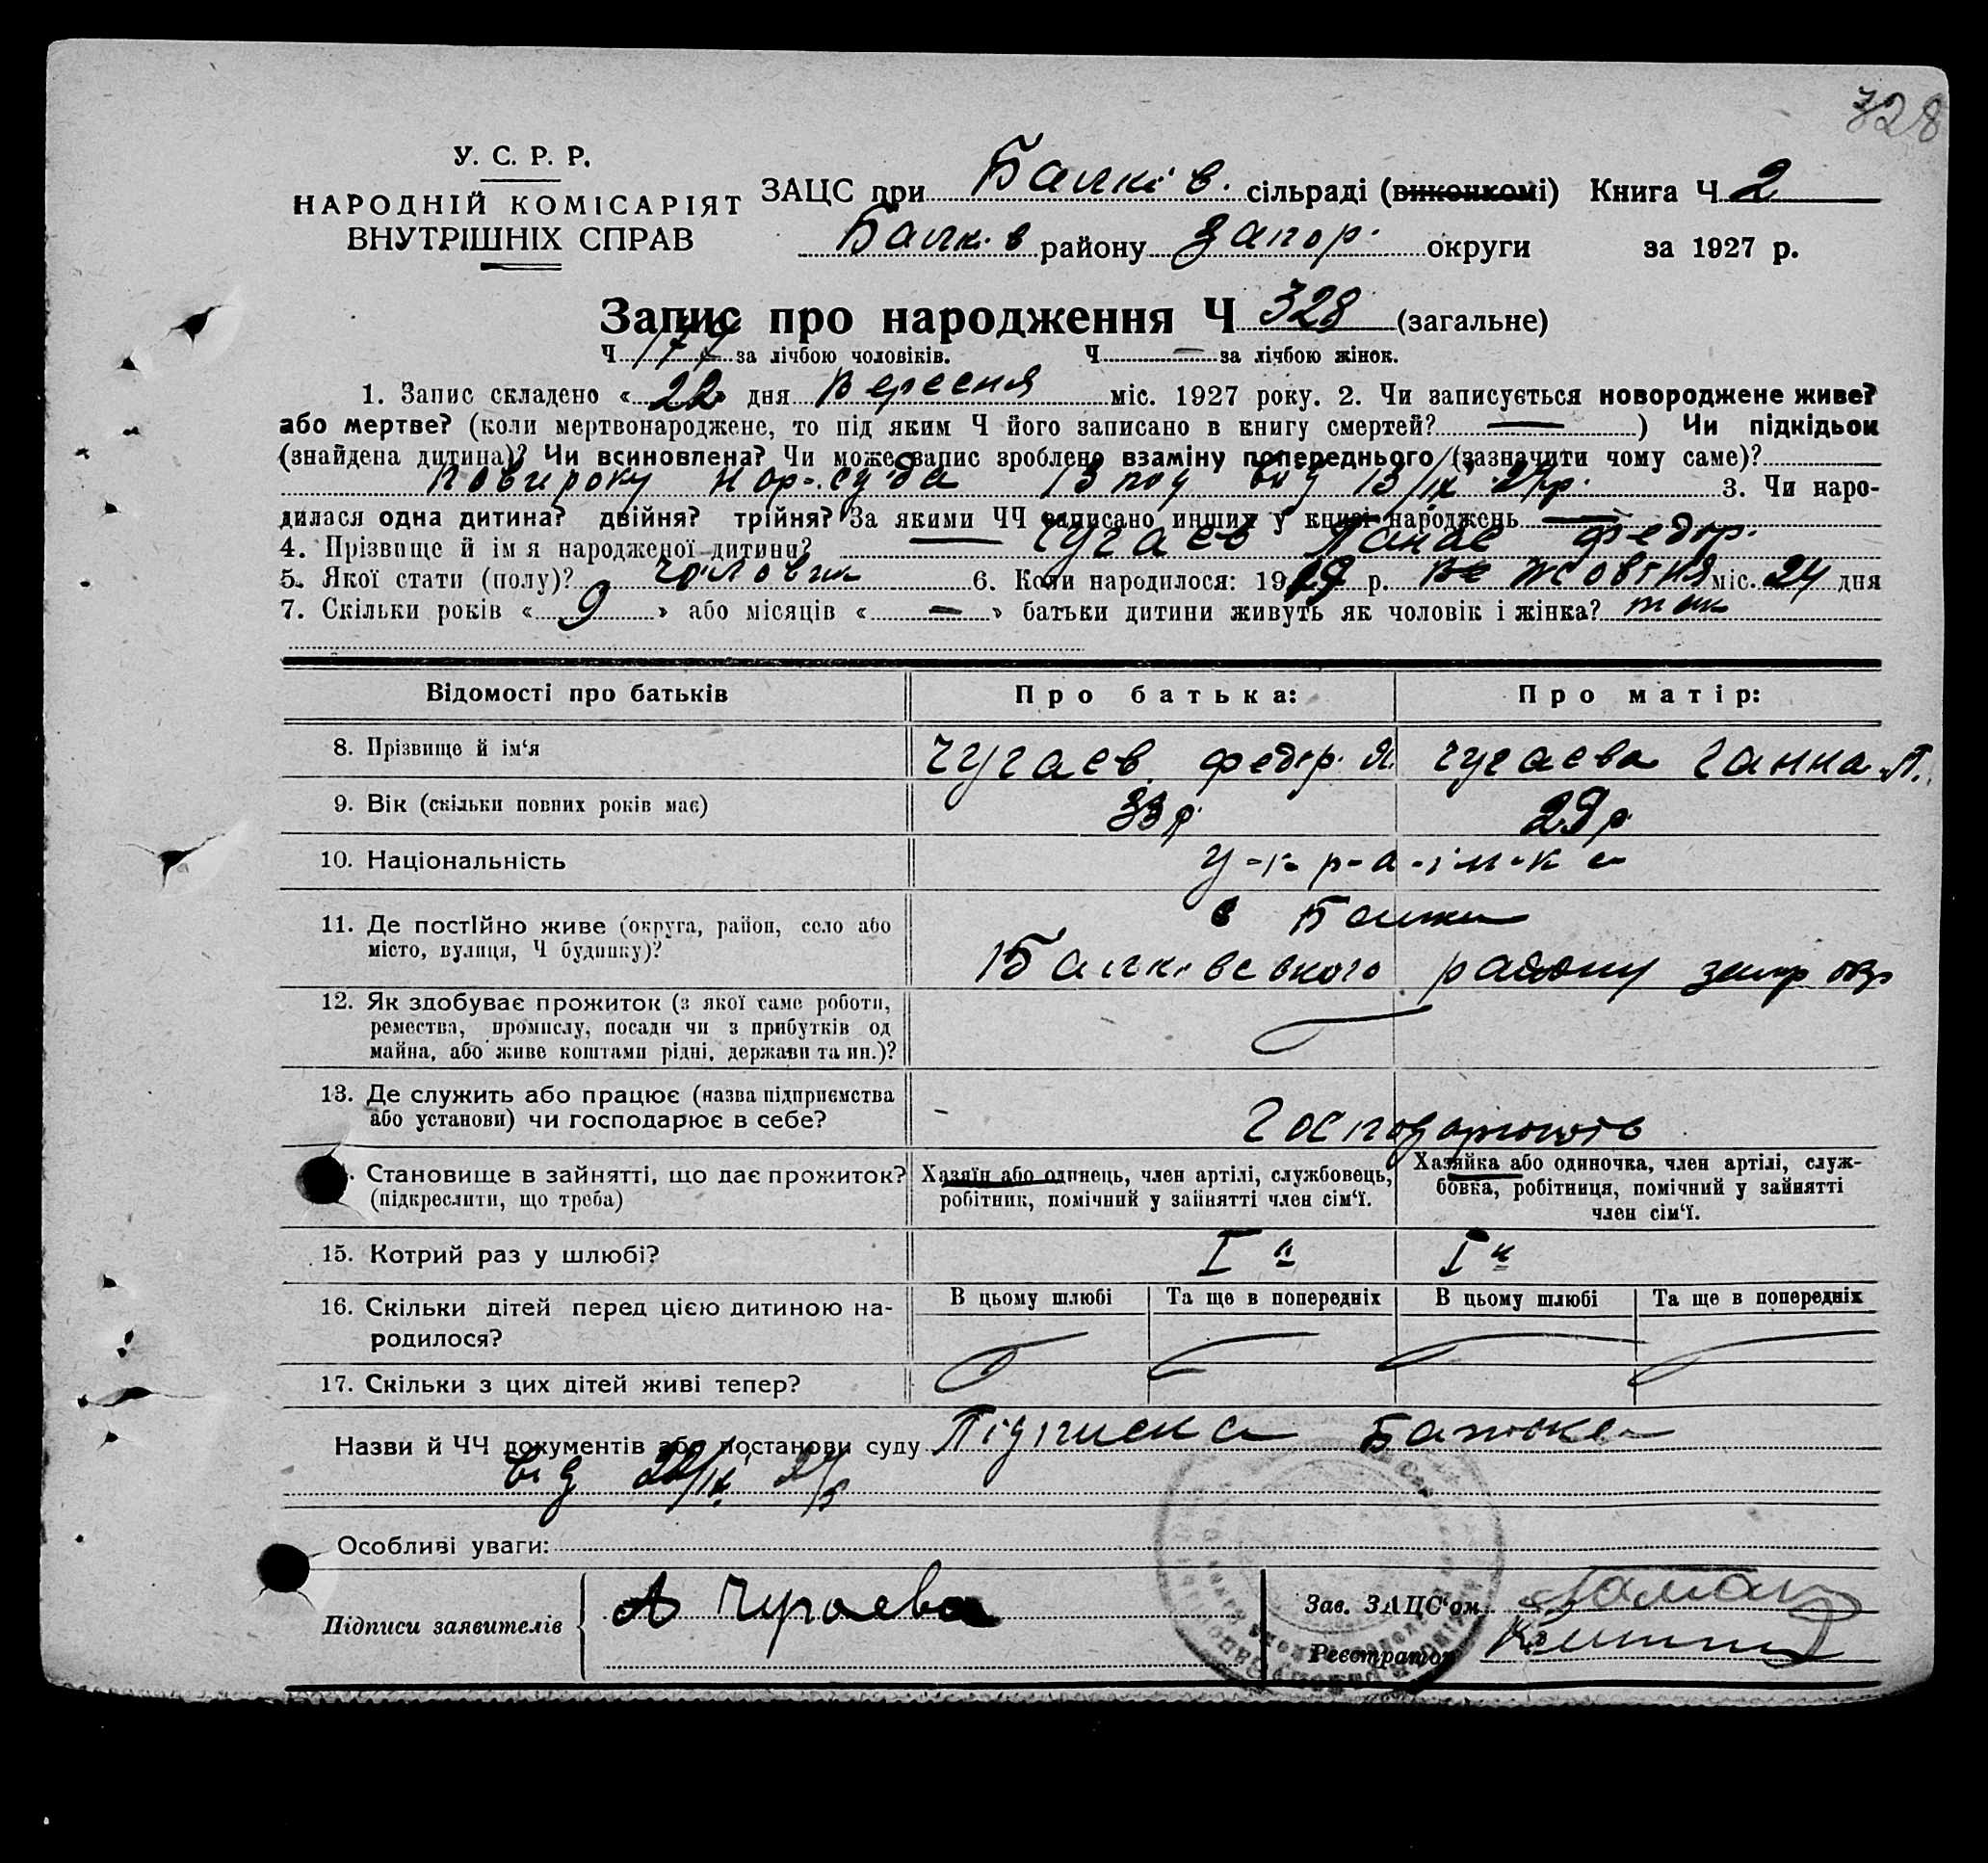 328
У. С. Р. Р.
НАРОДНІЙ КОМІСАРІЯТ
ВНУТРІШНІХ СПРАВ
ЗАЦС при Балків. сільраді (виконкомі) Книга Ч 2
Балк. в району Запор. округи за 1927 р.
Запис про народження Ч 328 (загальне)
Ч 177 за лічбою чоловіків. Ч — за лічбою жінок.
1. Запис складено « 22 » дня Вересня міс. 1927 року. 2. Чи записується новороджене живе?
або мертве? (коли мертвонароджене, то під яким Ч його записано в книгу смертей? — ) Чи підкідьок
(знайдена дитина)? Чи всиновлена? Чи може запис зроблено взаміну попереднього (зазначити чому саме)?
Нар. суда від 13/IX 27р. 3. Чи наро-
дилася одна дитина? двійня? трійня? За якими ЧЧ записано инших у книзі народжень —
4. Прізвище й ім я народженої дитини? Чугаєв Панас Федор.
5. Якої стати (полу)? чоловік 6. Коли народилося: 19 р. жовтня міс. 24 дня
7. Скільки років « 9 » або місяців « — » батьки дитини живуть як чоловік і жінка? так
Відомості про батьків Про батька: Про матір:
8. Прізвище й ім‘я Чугаєв Федор. Я. Чугаєва Ганна П.
9. Вік (скільки повних років має) 33 р. 29 р.
10. Національність у-к-р-а-ї-н-к-
11. Де постійно живе (округа, район, село або
місто, вулиця, Ч будинку)? в Балки
Балківського району запор окр
12. Як здобуває прожиток (з якої саме роботи,
ремества, промислу, посади чи з прибутків од
майна, або живе коштами рідні, держави та ин.)?
13. Де служить або працює (назва підприємства
або установи) чи господарює в себе? Господарюють
Становище в зайнятті, що дає прожиток?
(підкреслити, що треба)
Хазяїн або одинець, член артілі, службовець,
робітник, помічний у зайнятті член сім‘ї.
Хазяйка або одиночка, член артілі, служ-
бовка, робітниця, помічний у зайнятті
член сім‘ї.
15. Котрий раз у шлюбі? I й I й
16. Скільки дітей перед цією дитиною на-
родилося?
В цьому шлюбі Та ще в попередніх В цьому шлюбі Та ще в попередніх
17. Скільки з цих дітей живі тепер?
Назви й ЧЧ документів або постанови суду Підписка Батька
від 22/IX 27
Особливі уваги:
Підписи заявителів А Чугаева
Зав. ЗАЦС‘ом
Реєстратор